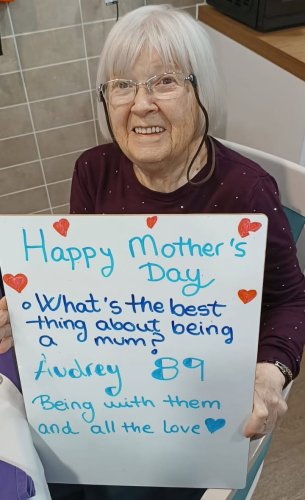 Happy Mother's
Day
What's the best
thing about being
a mum?
Audrey 89
Being with them
and all the love